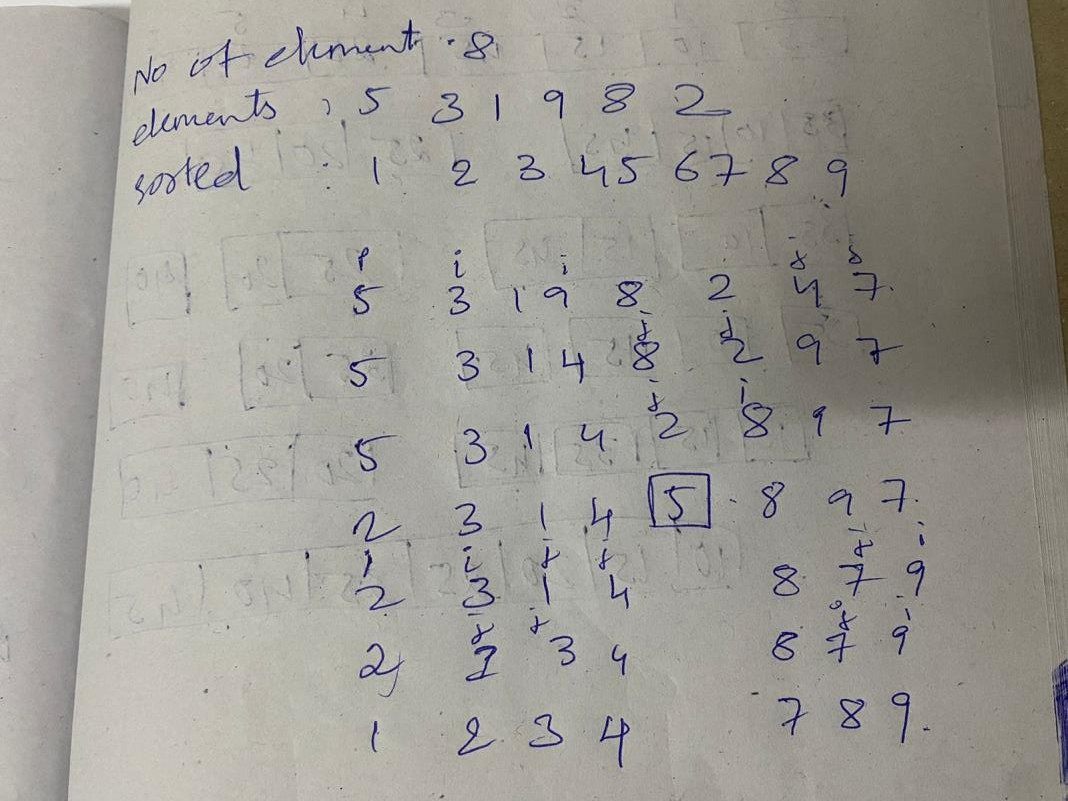 No of element : 8
elements : 5 3 1 9 8 2
sorted : 1 2 3 4 5 6 7 8 9
P i i j j
5 3 1 9 8 2 4 7
5 3 1 4 8 2 9 7
j i
5 3 1 4 2 8 9 7
2 3 1 4 5 8 9 7
i j j j i
2 3 1 4 8 7 9
j i
2 1 3 4 8 7 9
1 2 3 4 7 8 9